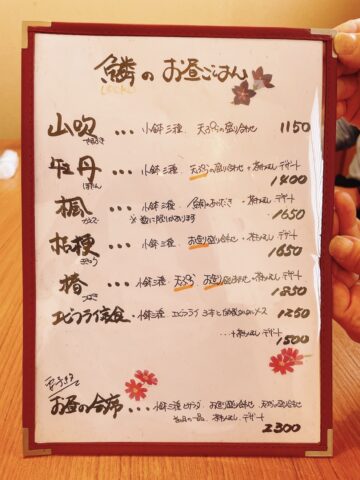 鱗のお昼ごはん
山吹 ... 小鉢三種、天ぷらの盛り合わせ 1150
やまぶき
牡丹 ... 小鉢三種、天ぷらの盛り合わせ・茶わんむし デザート
ぼたん 1400
楓 ... 小鉢三種
かえで ※数に限りがあります 1650
桔梗 ... 小鉢三種、お造り盛り合わせ・茶わんむし デザート
ききょう 1650
椿 ... 小鉢三種、天ぷら、お造り盛り合わせ・茶わんむし デザート
つばき 1850
エビフライ定食・小鉢三種、エビフライ 1250
...+茶わんむし デザート
1500
要予約
お昼の会席 ... 小鉢三種 サラダ、お造り盛り合わせ、天ぷら盛り合わせ
茶わんむし、デザート
2300